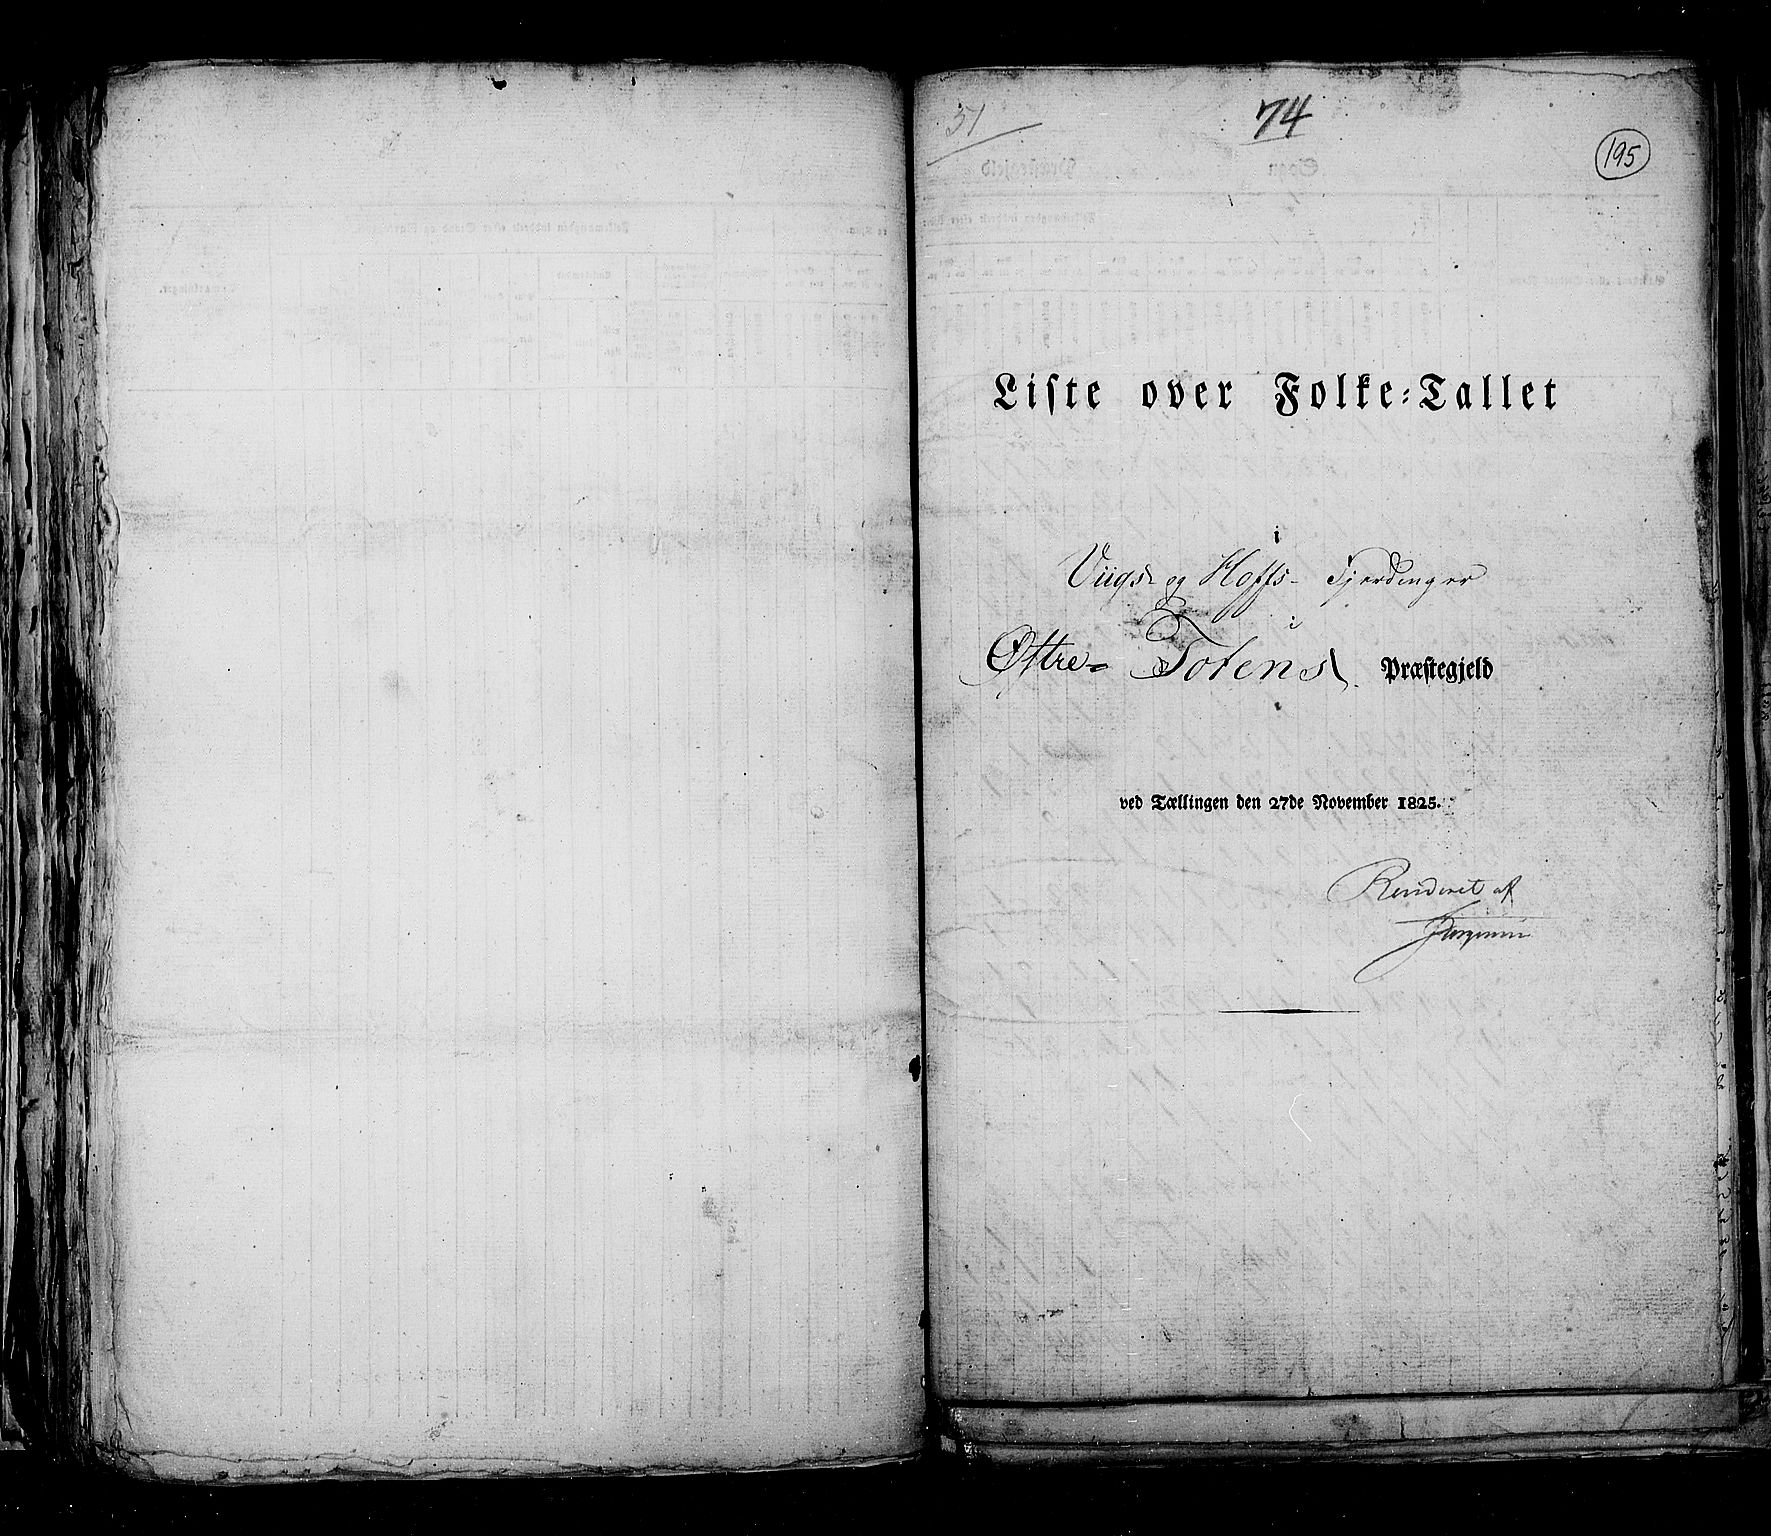 51
74
195
Liste over Folke-Tallet
i
Viigs- og Hoffs- Fjerdinger
i
Østre- Totens Præstegjeld
ved Tællingen den 27de November 1825.
Revideret af